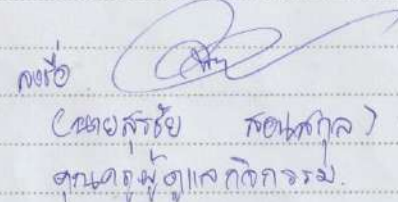 ลงชื่อ
(นายสุรชัย สอนสกุล)
คุณครูผู้ดูแลกิจกรรม.